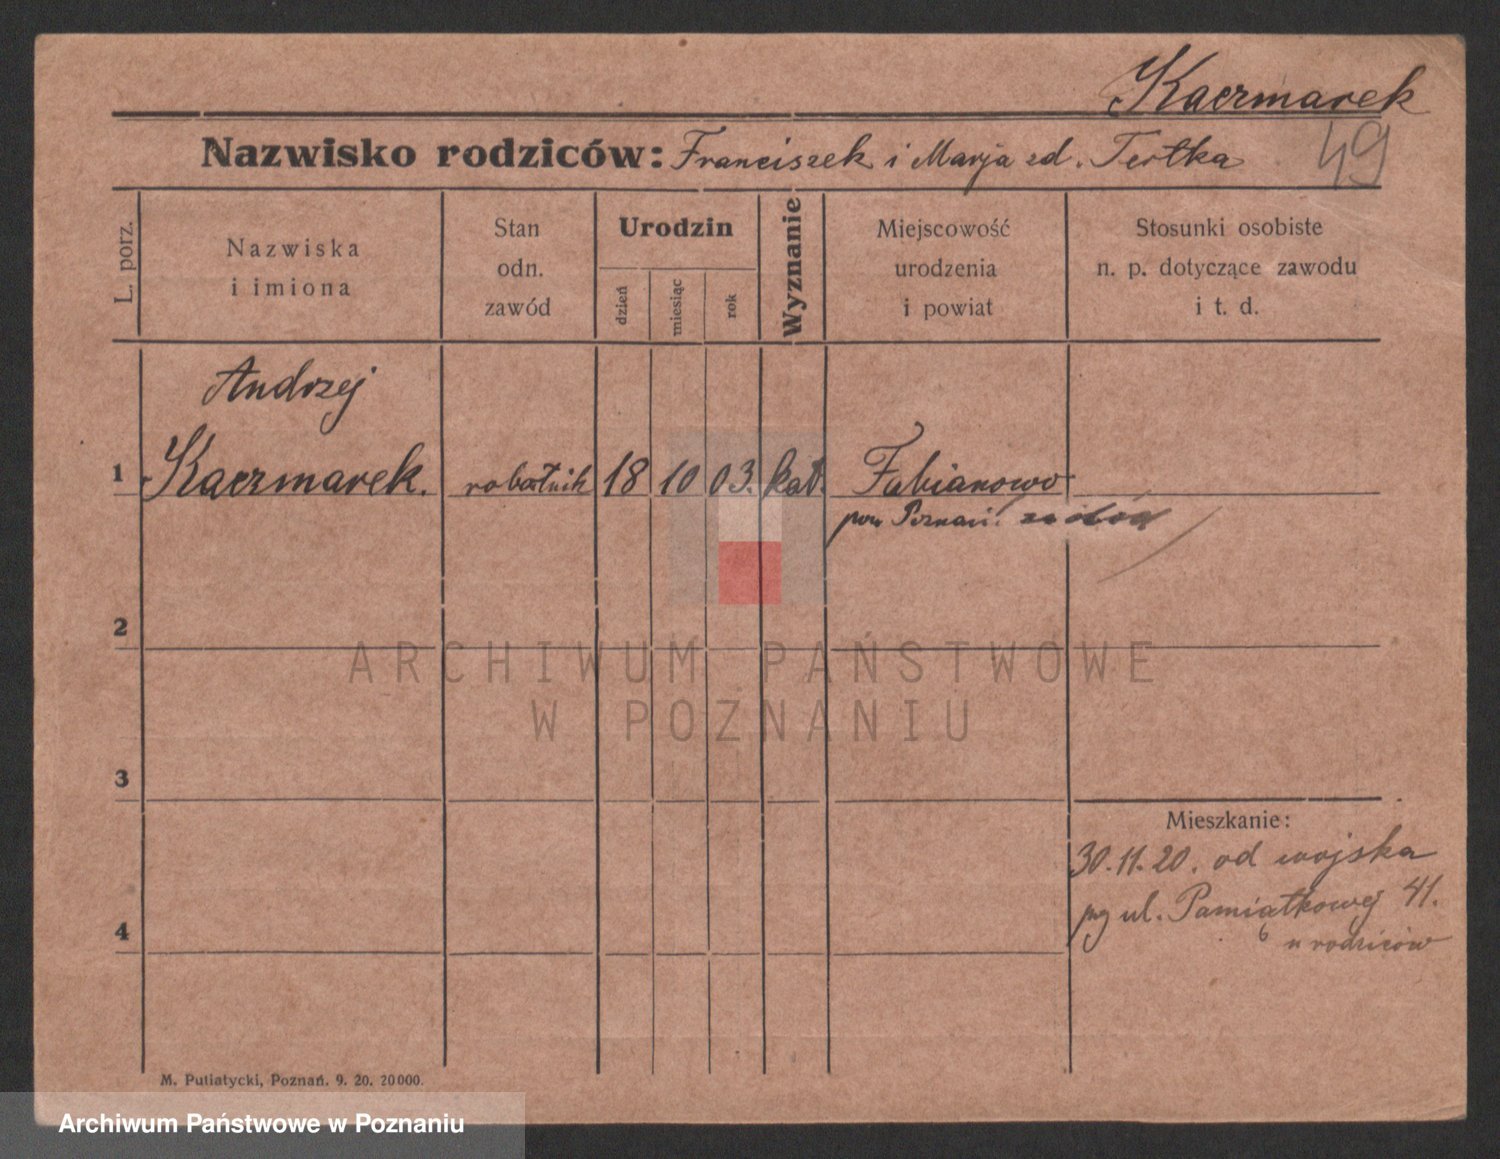 Kaczmarek
Nazwisko rodziców: Franciszek i Marja zd. Tertka
49
L. porz.
Nazwiska
i imiona
Stan
odn.
zawód
Urodzin
dzień
miesiąc
rok
Wyznanie
Miejscowość
urodzenia
i powiat
Stosunki osobiste
n. p. dotyczące zawodu
i t. d.
Andrzej
1 Kaczmarek. robotnik 18 10 03. kat. Fabianowo
pow. Poznań.
2
3
4
Mieszkanie:
30.11.20. od wojska
ul. Pamiątkowej 41.
6
u rodziców
M. Putiatycki, Poznań. 9. 20. 20000.
ARCHIWUM PAŃSTWOWE
W POZNANIU
Archiwum Państwowe w Poznaniu